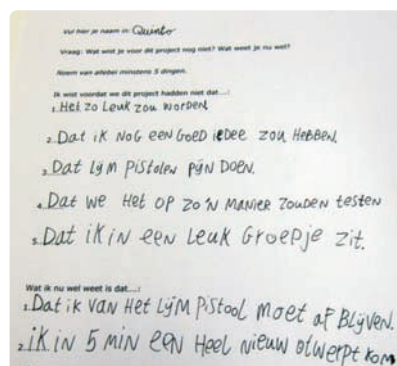 Vul hier je naam in: Quinto
Vraag: Wat wist je voor dit project nog niet? Wat weet je nu wel?
Noem van allebei minstens 5 dingen.
Ik wist voordat we dit project hadden niet dat...:
1. Het zo Leuk zou worden.
2. Dat ik Nog een Goed iedee zou Hebben.
3. Dat Lijm pistolen pijn Doen.
4. Dat we Het op zo'n Manier zouden testen
5. Dat ik in een Leuk Groepje zit.
Wat ik nu wel weet is dat....:
1. Dat ik van Het Lijm pistool moet af Blijven.
2. ik in 5 min een Heel nieuw otwerpt kom